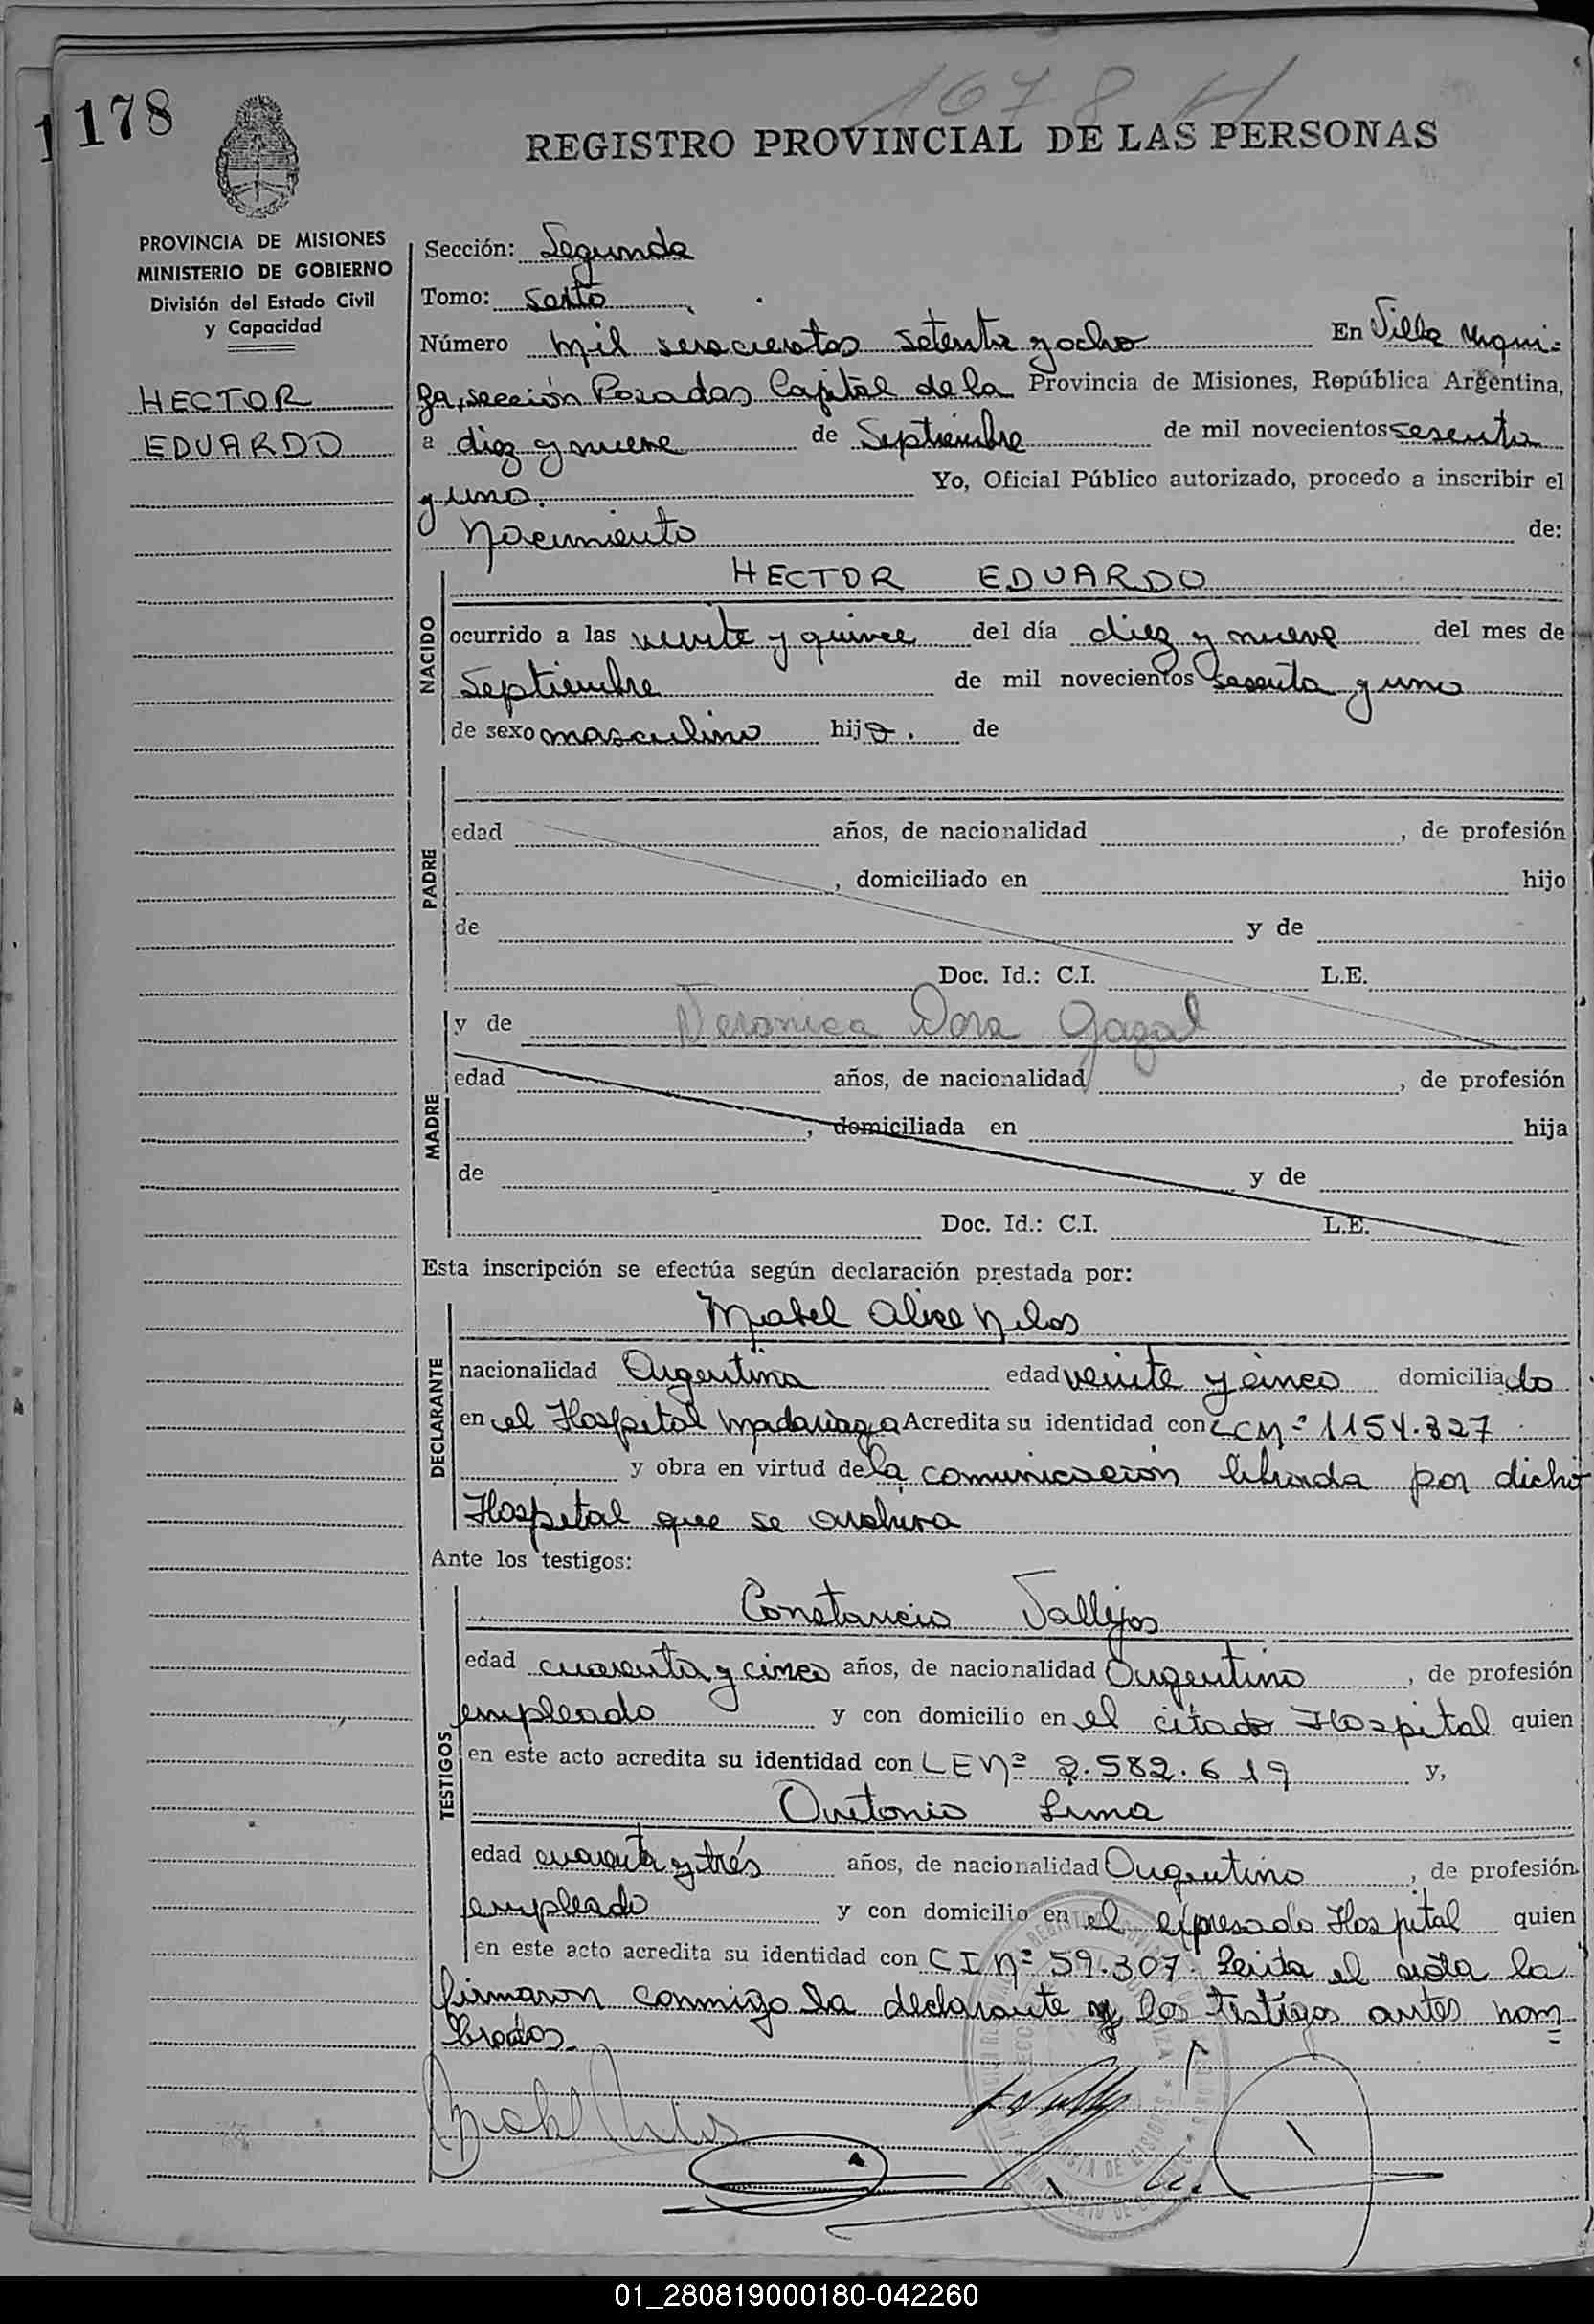 1678 H
1178
REGISTRO PROVINCIAL DE LAS PERSONAS
PROVINCIA DE MISIONES
MINISTERIO DE GOBIERNO
División del Estado Civil
y Capacidad
HECTOR
EDUARDO
Sección: Segunda
Tomo: Sexto
Número mil seiscientos setenta y ocho En Villa Urqui-
za, sección Posadas Capital de la Provincia de Misiones, República Argentina,
a diez y nueve de Septiembre de mil novecientos sesenta
y uno. Yo, Oficial Público autorizado, procedo a inscribir el
Nacimiento de:
NACIDO
HECTOR EDUARDO
ocurrido a las veinte y quince del día diez y nueve del mes de
Septiembre de mil novecientos sesenta y uno
de sexo masculino hijo. de
PADRE
edad años, de nacionalidad , de profesión
, domiciliado en hijo
de y de
Doc. Id.: C.I. L.E.
MADRE
y de Veronica Dora Gagal
edad años, de nacionalidad , de profesión
, domiciliada en hija
de y de
Doc. Id.: C.I. L.E.
Esta inscripción se efectúa según declaración prestada por:
DECLARANTE
Mabel Alice
nacionalidad Argentina edad veinte y cinco domiciliado
en el Hospital Madariaga Acredita su identidad con LC Nº 1154.327
y obra en virtud de la comunicación librada por dicho
Hospital que se archiva
Ante los testigos:
TESTIGOS
Constancio Vallejos
edad cuarenta y cinco años, de nacionalidad Argentino , de profesión
empleado y con domicilio en el citado Hospital quien
en este acto acredita su identidad con LE Nº 2.582.619 y,
Antonio Lima
edad cuarenta y trés años, de nacionalidad Argentino , de profesión
empleado y con domicilio en el expresado Hospital quien
en este acto acredita su identidad con CI Nº 59.307. Leída el acta la
firmaron conmigo la declarante y los testigos antes nom
brados.
01_280819000180-042260